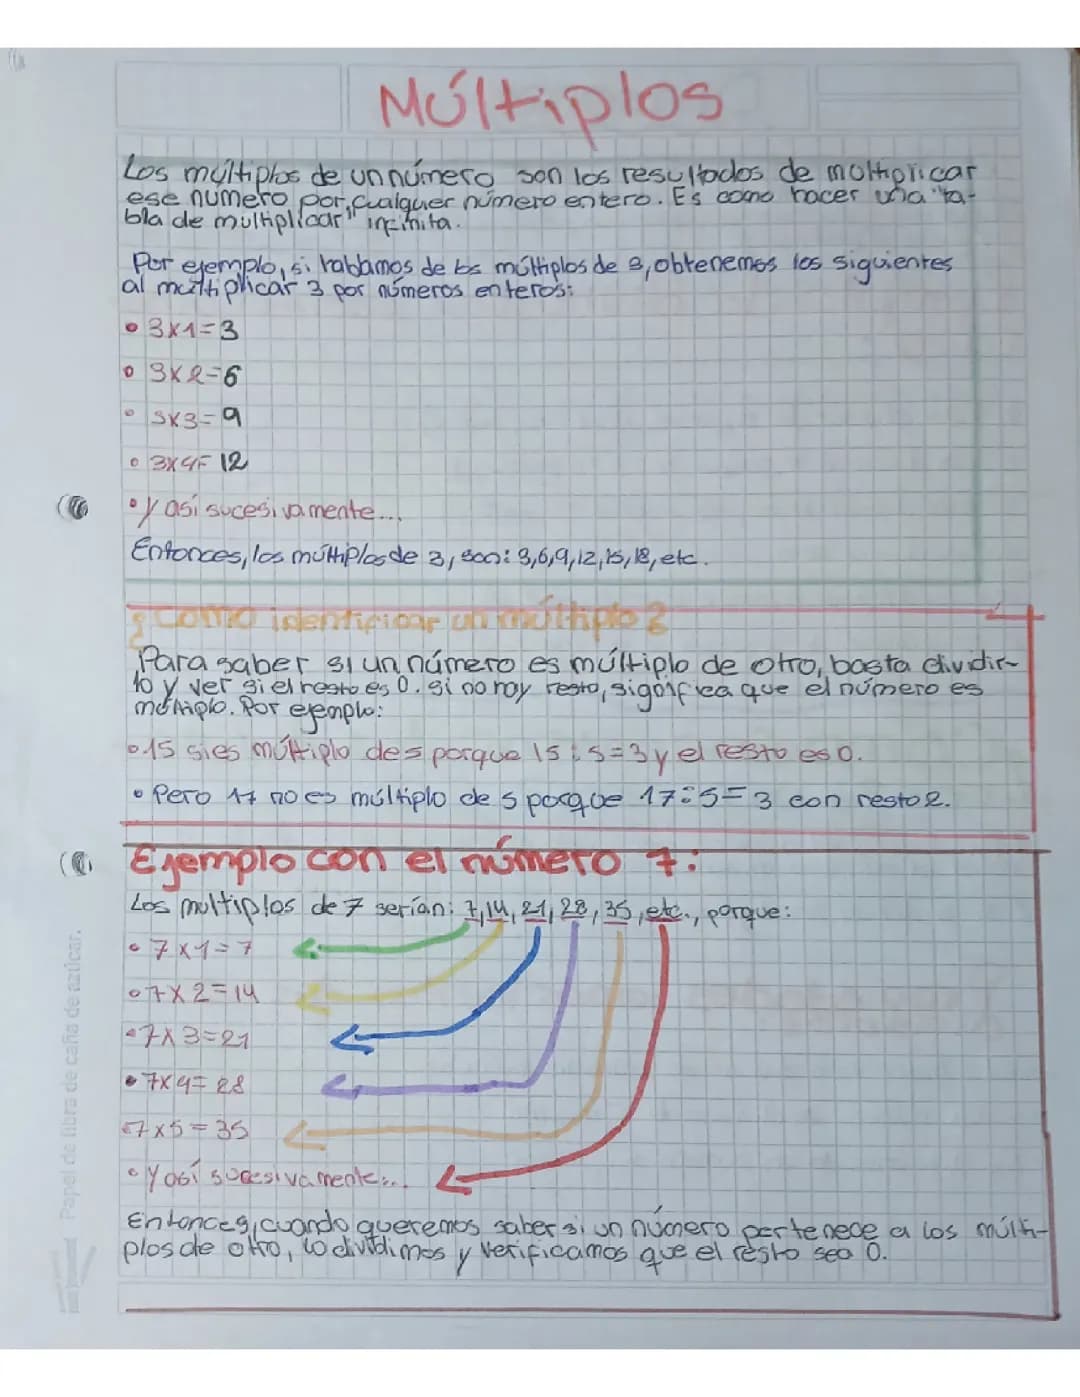 Múltiplos
Los múltiplos de un número son los resultados de multiplicar
ese número por cualquier número entero. Es como hacer una "ta-
bla de multiplicar" infinita.
Por ejemplo, si hablamos de los múltiplos de 3, obtenemos los siguientes
al multiplicar 3 por números enteros:
• 3x1=3
• 3x2=6
• 3x3=9
• 3x4=12
• y así sucesivamente...
Entonces, los múltiplos de 3, son: 3,6,9,12,15,18, etc.
¿Como identificar un múltiplo?
Para saber si un número es múltiplo de otro, basta dividir-
lo y ver si el resto es 0. si no hay resto, significa que el número es
múltiplo. Por ejemplo:
• 15 si es múltiplo de 5 porque 15:5=3 y el resto es 0.
• Pero 17 no es múltiplo de 5 porque 17:5=3 con resto 2.
Ejemplo con el número 7:
Los multiplos de 7 serían: 7,14,21,28,35,etc., porque:
• 7x1=7
• 7x2=14
• 7x3=21
• 7x4=28
• 7x5=35
• Y así sucesivamente...
Entonces, cuando queremos saber si un número pertenece a los múlti-
plos de otro, lo dividimos y verificamos que el resto sea 0.
Papel de fibra de caña de azúcar.